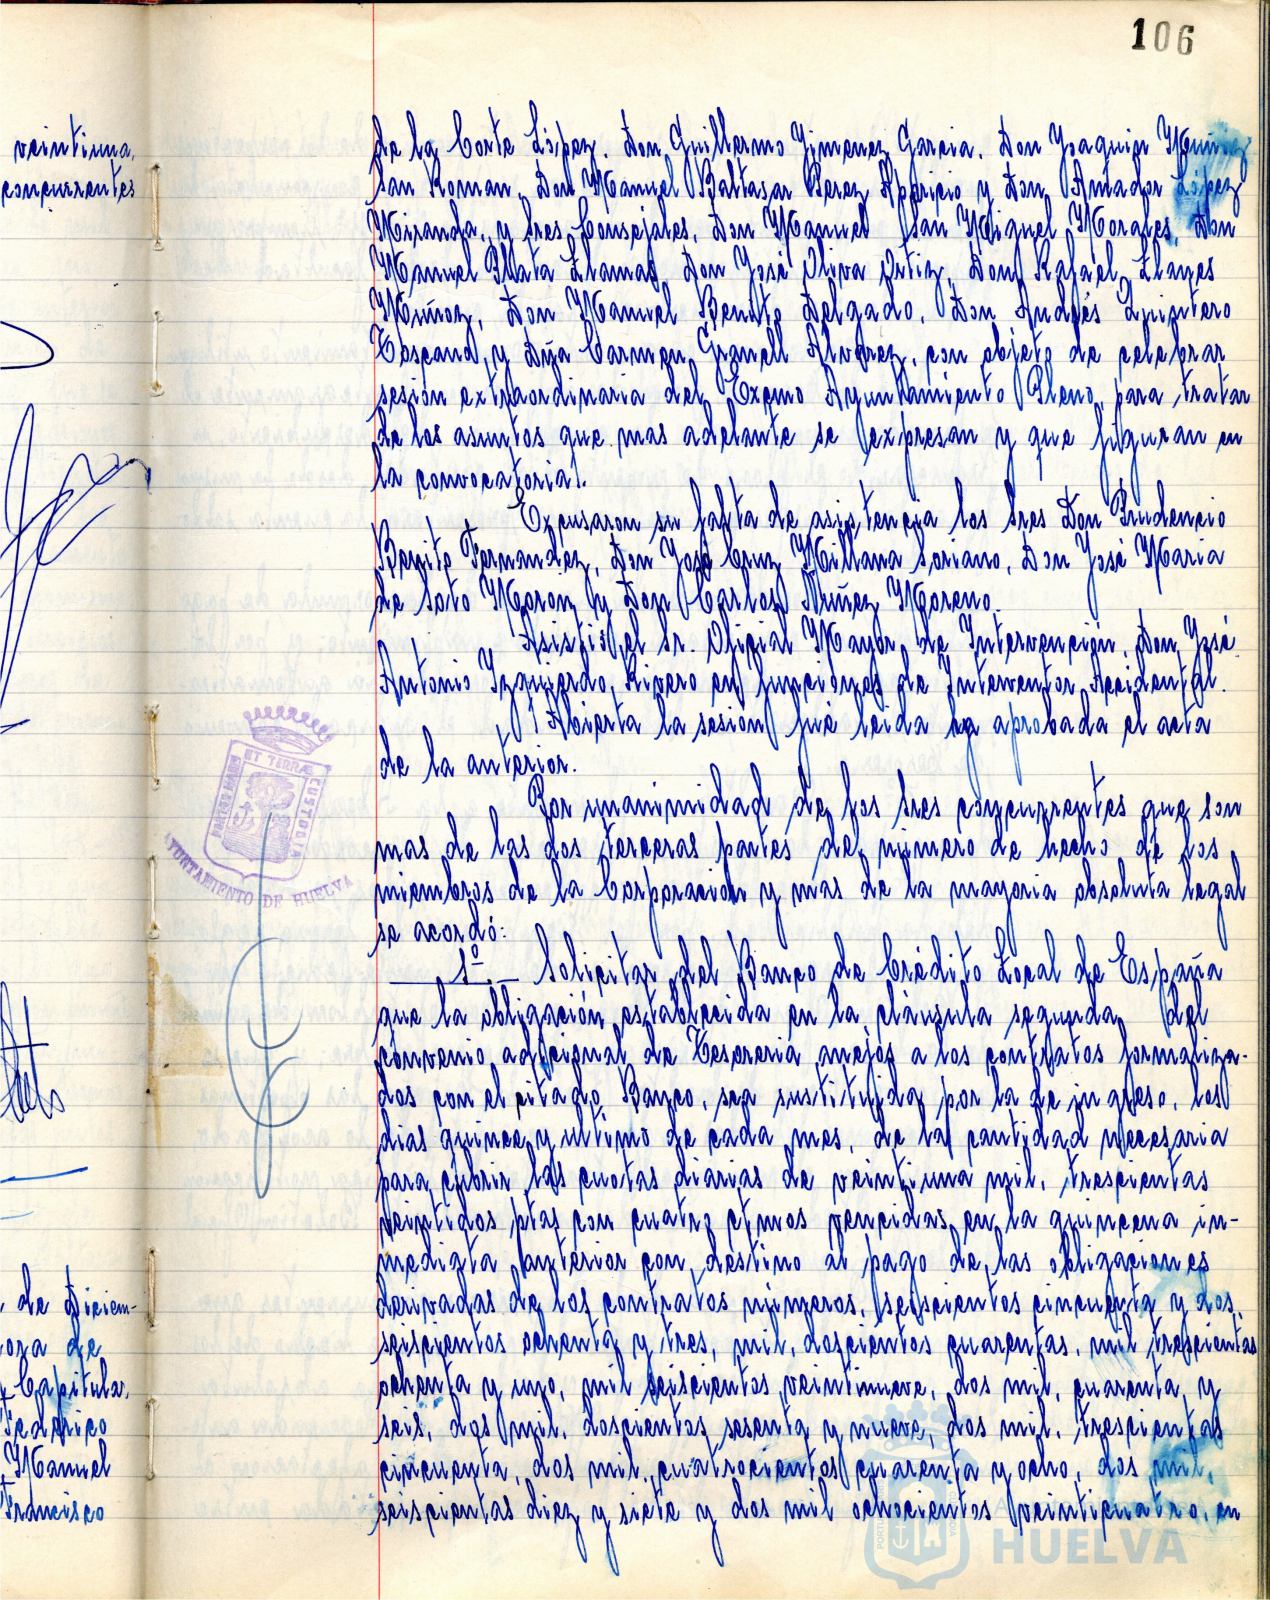 106
veintiuna,
concurrentes
de Diciem-
ora de
Capitular,
Federico
Manuel
Francisco
de la Corte López. Don Guillermo Jimenez Garcia. Don Joaquin Muñiz
San Roman, Don Manuel Baltasar Perez Aparicio y Don Antador López
Miranda, y Sres Consejales, Don Manuel San Miguel Morales, Don
Manuel Mata Llamas, Don José Oliva Ortiz, Don Rafael Llanes
Muñoz, Don Manuel Benito Delgado, Don Andrés Quintero
Toscano, y Dña Carmen Granell Alvarez, con objeto de celebrar
sesión extraordinaria del Excmo Ayuntamiento Pleno, para tratar
de los asuntos que mas adelante se expresan y que figuran en
la convocatoria.
Excusaron su falta de asistencia los Sres Don Prudencio
Benito Fernandez, Don José Cruz Millana Soriano, Don José Maria
de Soto Moron y Don Carlos Nuñez Moreno.
Asistió el Sr. Oficial Mayor de Intervención, Don José
Antonio Izquierdo Rivero en funciones de Interventor Accidental.
Abierta la sesión fué leida y aprobada el acta
de la anterior.
Por unanimidad de los Sres concurrentes que son
mas de las dos terceras partes de número de hecho de los
miembros de la Corporación y mas de la mayoria absoluta legal
se acordó:
1º.- Solicitar del Banco de Crédito Local de España
que la obligación establecida en la cláusula segunda del
convenio adicional de Tesoreria anejos a los contratos formaliza-
dos con el citado Banco, sea sustituida por la de ingreso, los
dias quince y ultimo de cada mes, de la cantidad necesaria
para cubrir las cuotas diarias de veintiuna mil, trescientas
veintidos ptas con cuatro ctmos vencidas en la quincena in-
mediata anterior con destino al pago de las obligaciones
derivadas de los contratos números, seiscientos cincuenta y dos,
seiscientos ochenta y tres, mil, doscientos cuarentas, mil trescientas
ochenta y uno, mil seiscientos veintinueve, dos mil, cuarenta y
seis, dos mil, doscientos sesenta y nueve, dos mil, trescientas
cincuenta, dos mil, cuatrocientos cuarenta y ocho, dos mil,
seiscientas diez y siete y dos mil ochocientos veinticuatro, en
PORTUS MARIS ET TERRAE CUSTODIA
AYUNTAMIENTO DE HUELVA
HUELVA